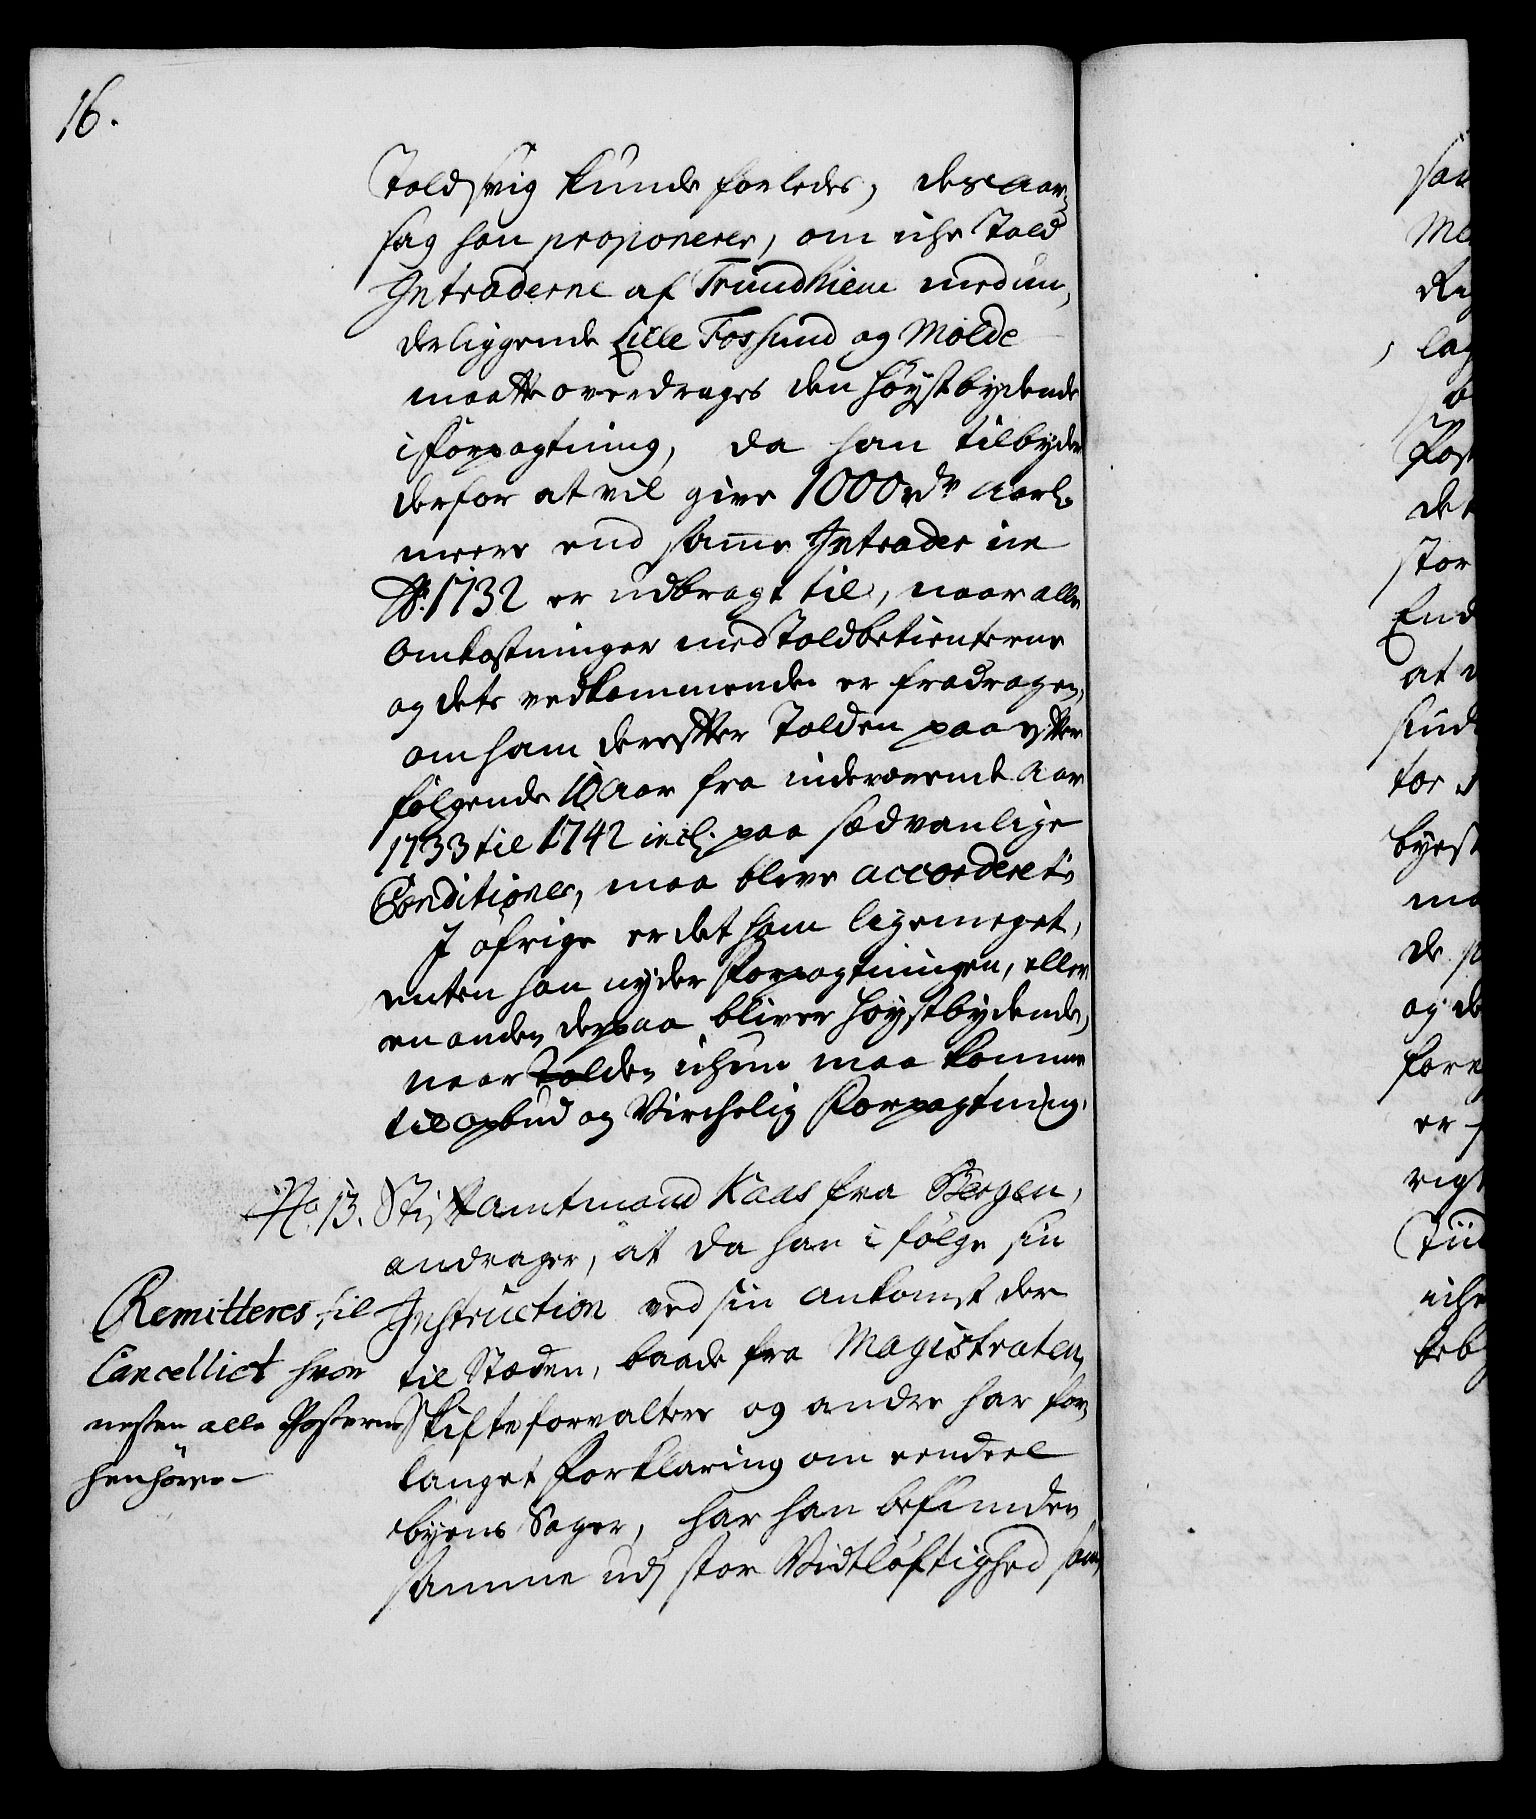 16.
Toldsvig kunde forledes, des Aar-
sag han proponerer, om iche Told
Intraderne af Trundhiem med un-
derliggende Lille Fossund og Molde
maatte overdrages den høystbydende
i Forpagtning, da han tilbyder
derfor at vil give 1000 rdr aarl.
meere end samme Intrader in
Ao. 1732 er udbragt til, naar alle
Omkostninger med Toldbetienterne
og dets vedkommende er fradragen,
om ham derefter Tolden paa efter
følgende 10 Aar fra indeværende Aar
1733 til 1742 incl. paa sædvanlige
Conditioner, maa blive accorderet.
I øfrige er det ham ligemeget,
enten han nyder Forpagtningen, eller
en anden derpaa bliver høystbydende,
naar Tolden ichun maa komme
til opbud og Virchelig Forpagtning.
No. 13. Stiftamtmand Kaas fra Bergen,
andrager, at da han i følge sin
Instruction ved sin ankomst der
til Staden, baade fra Magistraten,
Skifteforvaltere og andre har for-
langet Forklaring om eendeel
byens Sager, har han befunden
samme udj stor Vidtløftighed som
Remitteres til
Cancelliet hvor
nesten alle Posterne
henhører